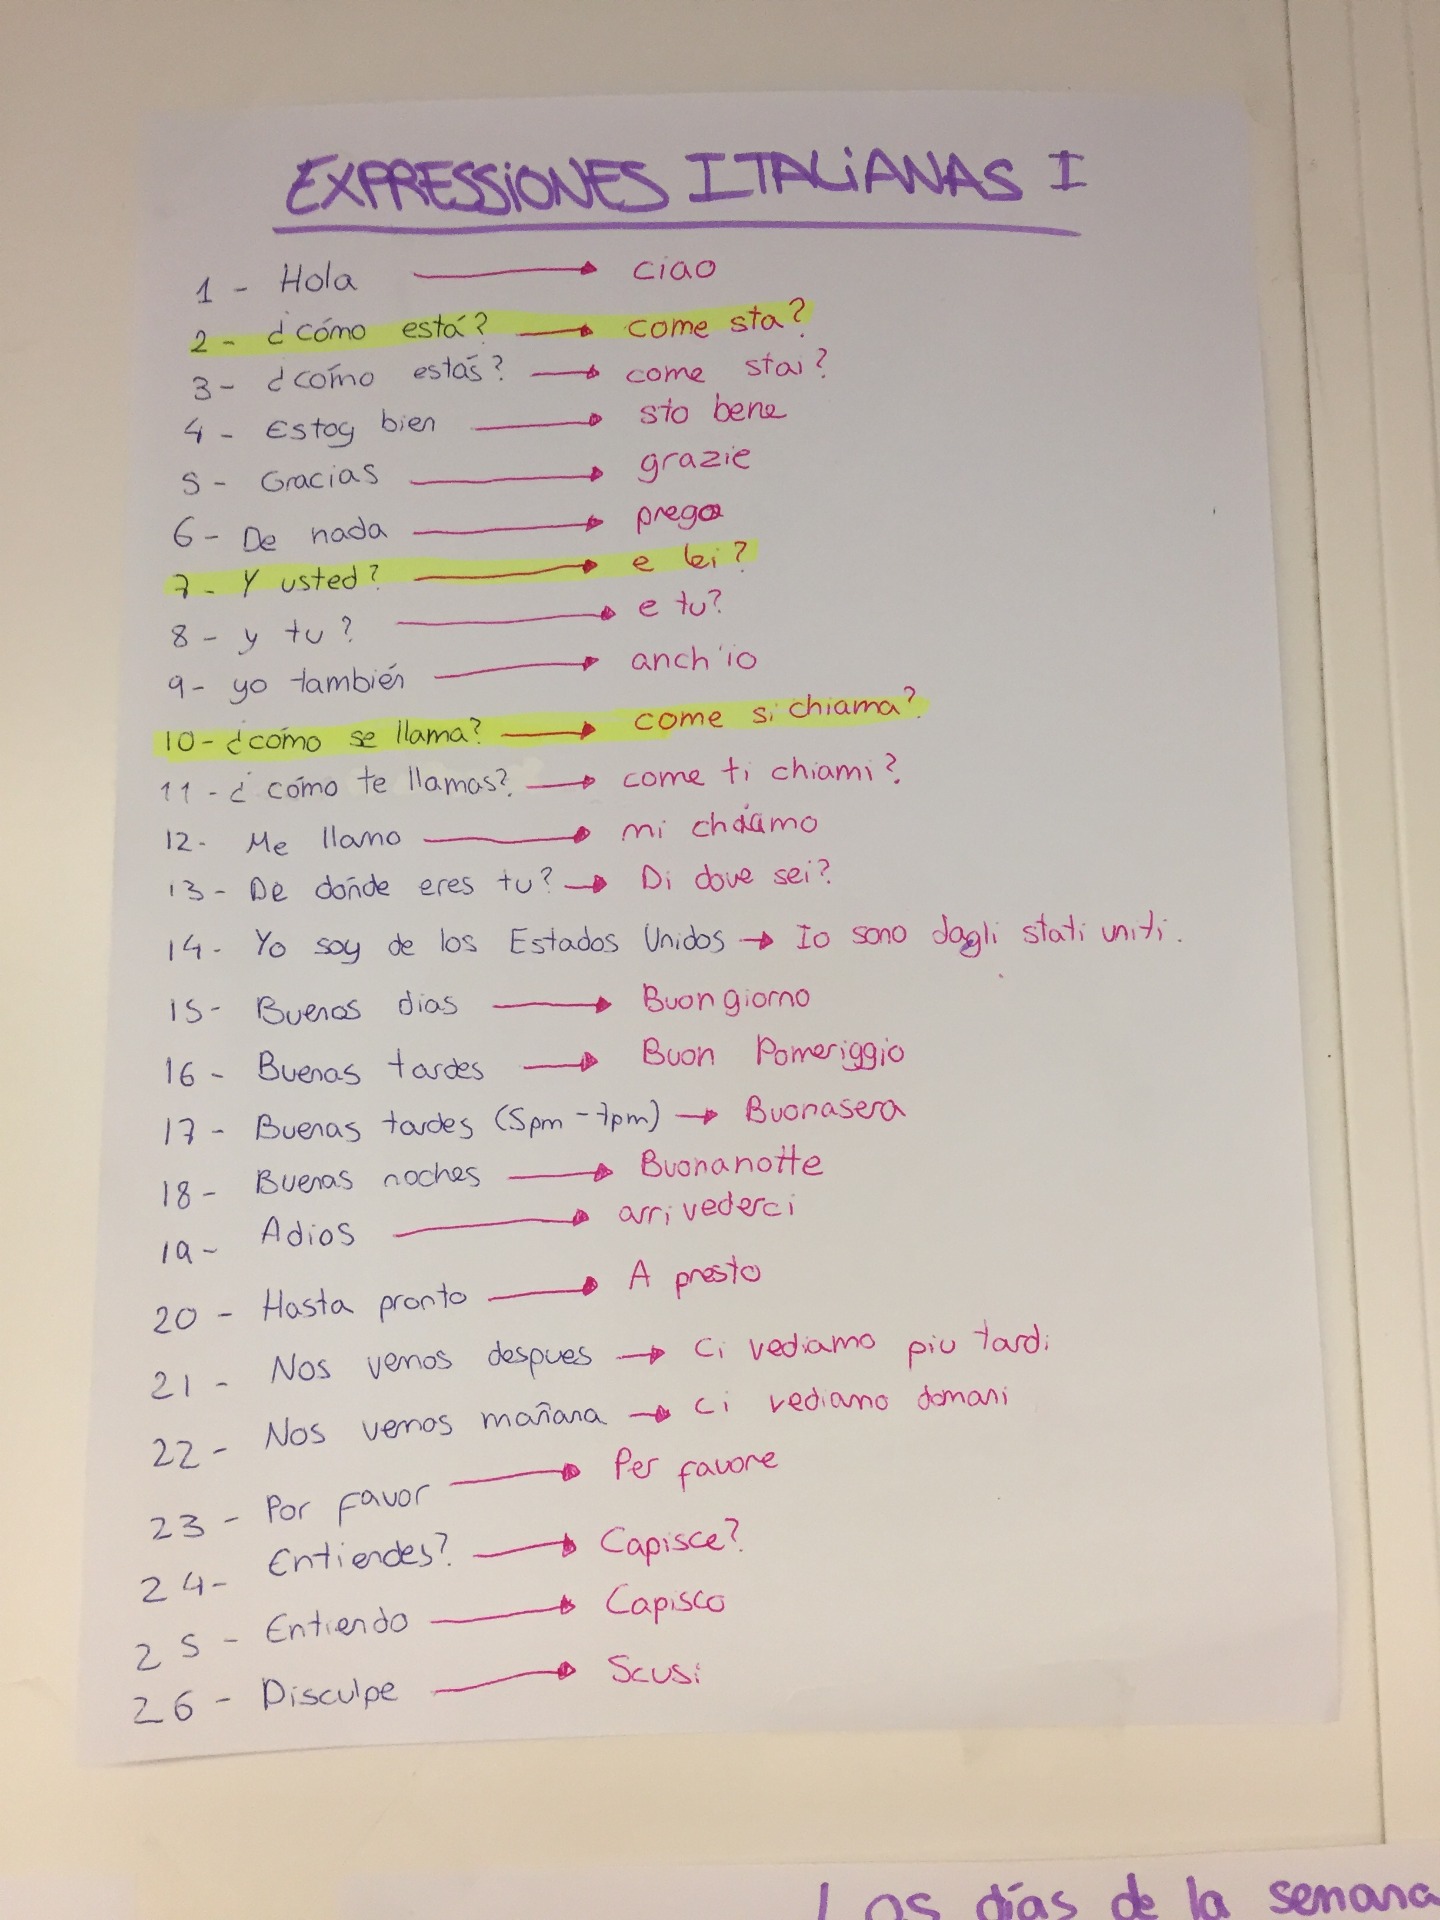 EXPRESSIONES ITALIANAS I
1 - Hola → ciao
2 - ¿cómo está? → come sta?
3 - ¿cómo estás? → come stai?
4 - Estoy bien → sto bene
5 - Gracias → grazie
6 - De nada → prego
7 - Y usted? → e lei?
8 - y tu? → e tu?
9 - yo también → anch'io
10 - ¿cómo se llama? → come si chiama?
11 - ¿cómo te llamas? → come ti chiami?
12 - Me llamo → mi chiamo
13 - De dónde eres tu? → Di dove sei?
14 - Yo soy de los Estados Unidos → Io sono dagli stati uniti.
15 - Buenos dias → Buon giorno
16 - Buenas tardes → Buon Pomeriggio
17 - Buenas tardes (5pm - 7pm) → Buonasera
18 - Buenas noches → Buonanotte
19 - Adios → arrivederci
20 - Hasta pronto → A presto
21 - Nos vemos despues → Ci vediamo piu tardi
22 - Nos vemos mañana → Ci vediamo domani
23 - Por favor → Per favore
24 - Entiendes? → Capisce?
25 - Entiendo → Capisco
26 - Disculpe → Scusi
Los días de la semana